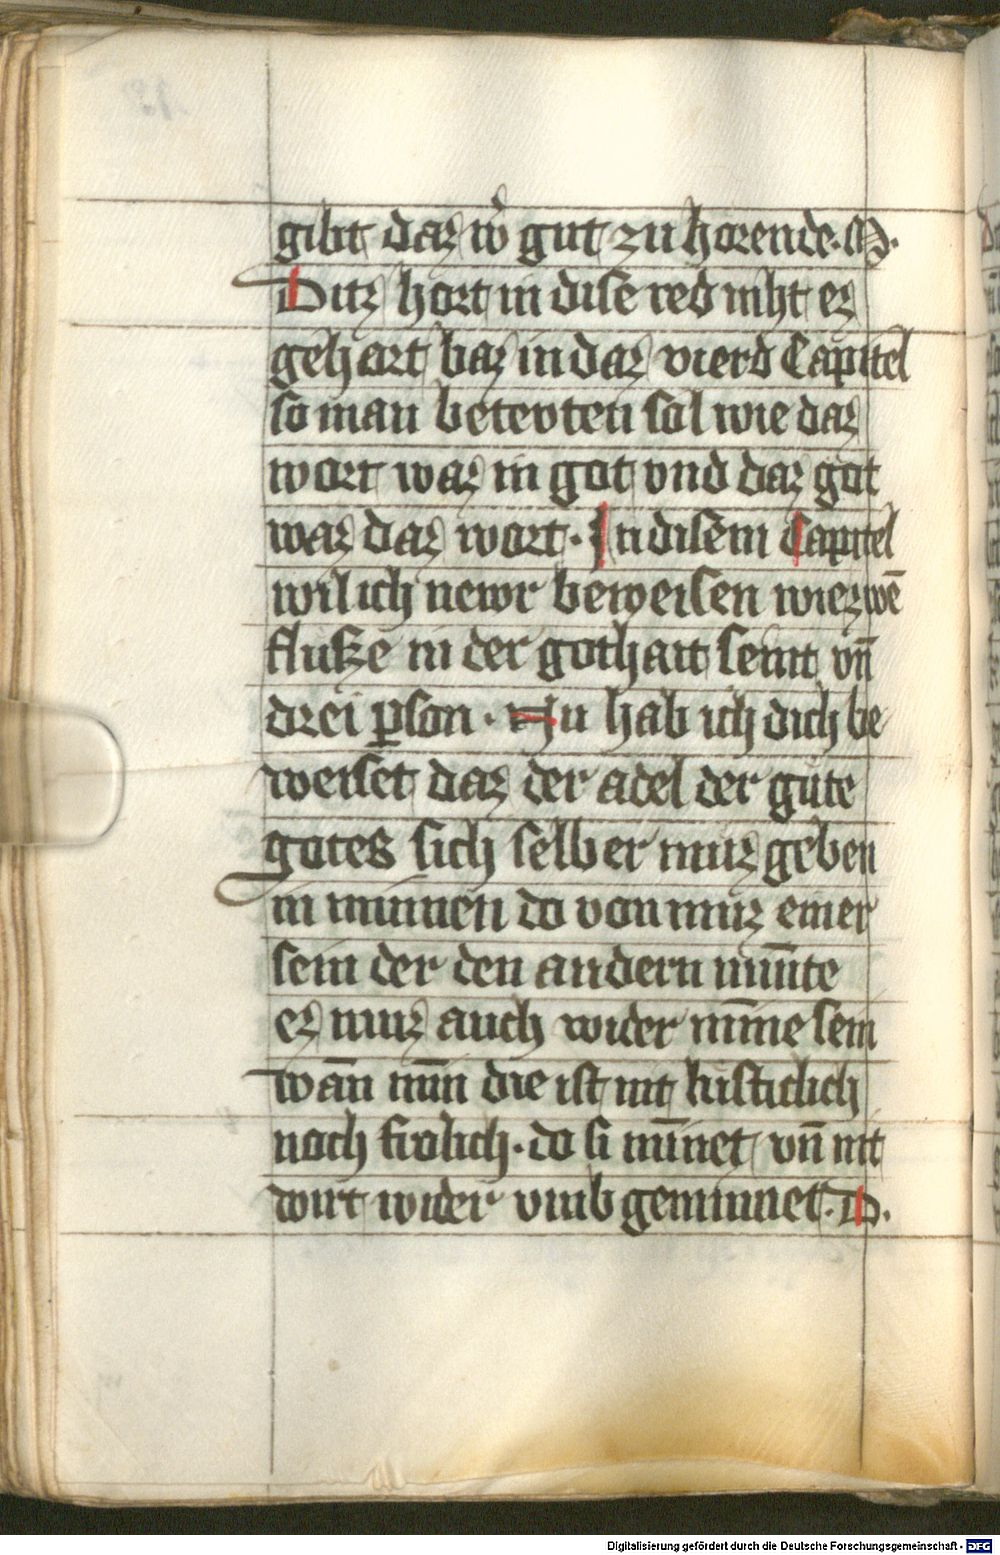 gibt daz wˀ gut zu horende. M.
Ditz hort in dise red niht ez
gehort baz in daz vierd Capitel
so man betevten sol wie daz
wort waz in got vnd daz got
waz daz wort. In disem Capitel
wil ich newr beweisen wie zwē
fluzze in der gothait seint vn̄
drei ꝑson. Nu hab ich dich be
weiset daz der adel der gute
gotes sich selber muz geben
in minnen do von muz einer
sein der den andern minte
ez muz auch wider mīne sein
wan̄ min̄ die ist nit lusticlich
noch frolich. do si mīnet vn̄ nit
wirt wider vmb geminnet. D.
Digitalisierung gefördert durch die Deutsche Forschungsgemeinschaft - DFG